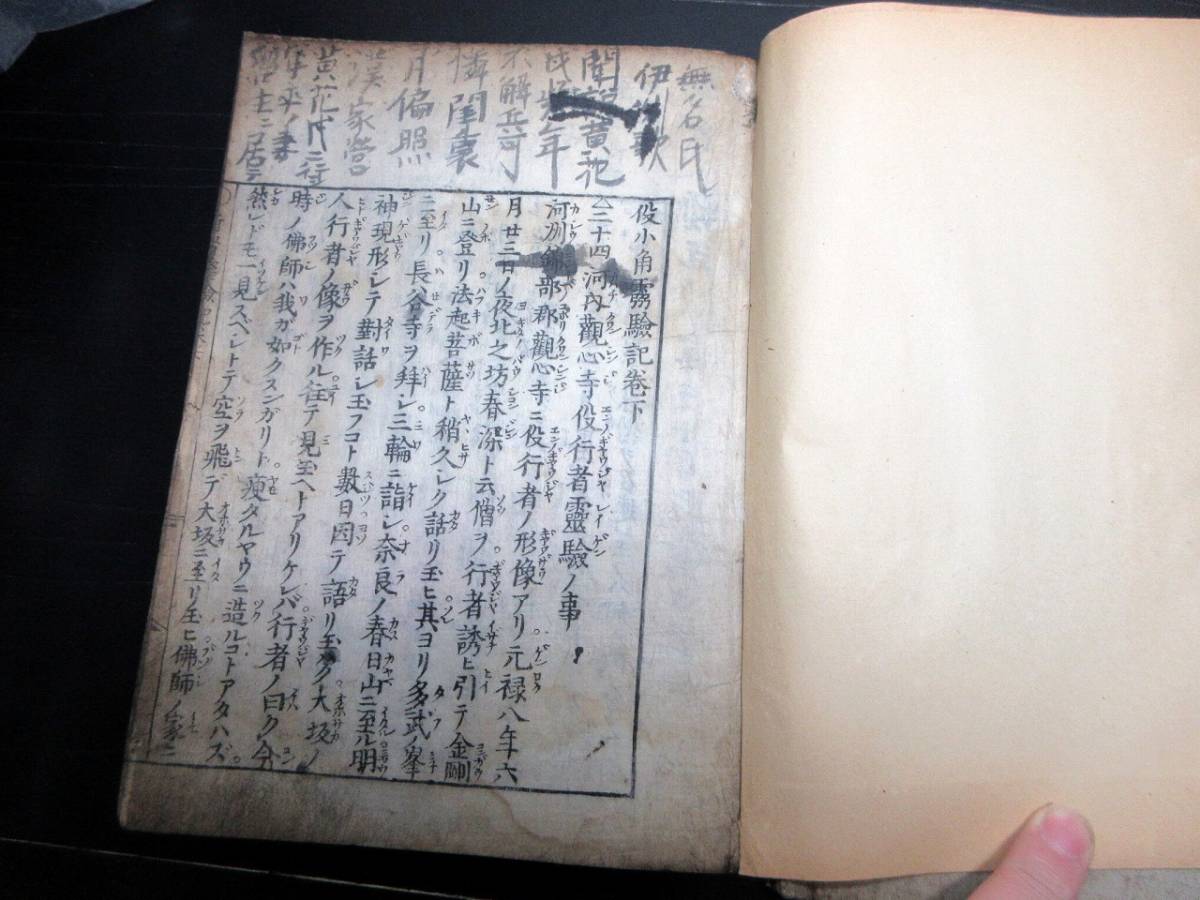 無名氏
伊州歌
聞詔黄花
戍頻年
不解兵可
憐閨裏
月偏照
漢家営
黄花戍ニ
ノ妻
主ニ居テ
役小角靈驗記巻下
二十四河内觀心寺役行者靈驗ノ事
河州錦部郡觀心寺ニ役行者ノ形像アリ元禄八年六
月廿三日ノ夜北之坊春深ト云僧ヲ行者誘ヒ引テ金剛
山ニ登リ法起菩薩ト稍久シク話リ玉ヒ其ヨリ多武ノ峯
ニ至リ長谷寺ヲ拜シ三輪ニ詣シ奈良ノ春日山ニ至ル明
神現形シテ對話シ玉フコト數日因テ語リ玉ク大坂ノ
人行者ノ像ヲ作ル往テ見玉ヘトアリケレバ行者ノ曰ク今
時ノ佛師ハ我ガ如クスンガリト瘦タルヤウニ造ルコトアタハズ
然レドモ一見スベシトテ空ヲ飛デ大坂ニ至リ玉ヒ佛師ノ家ニ